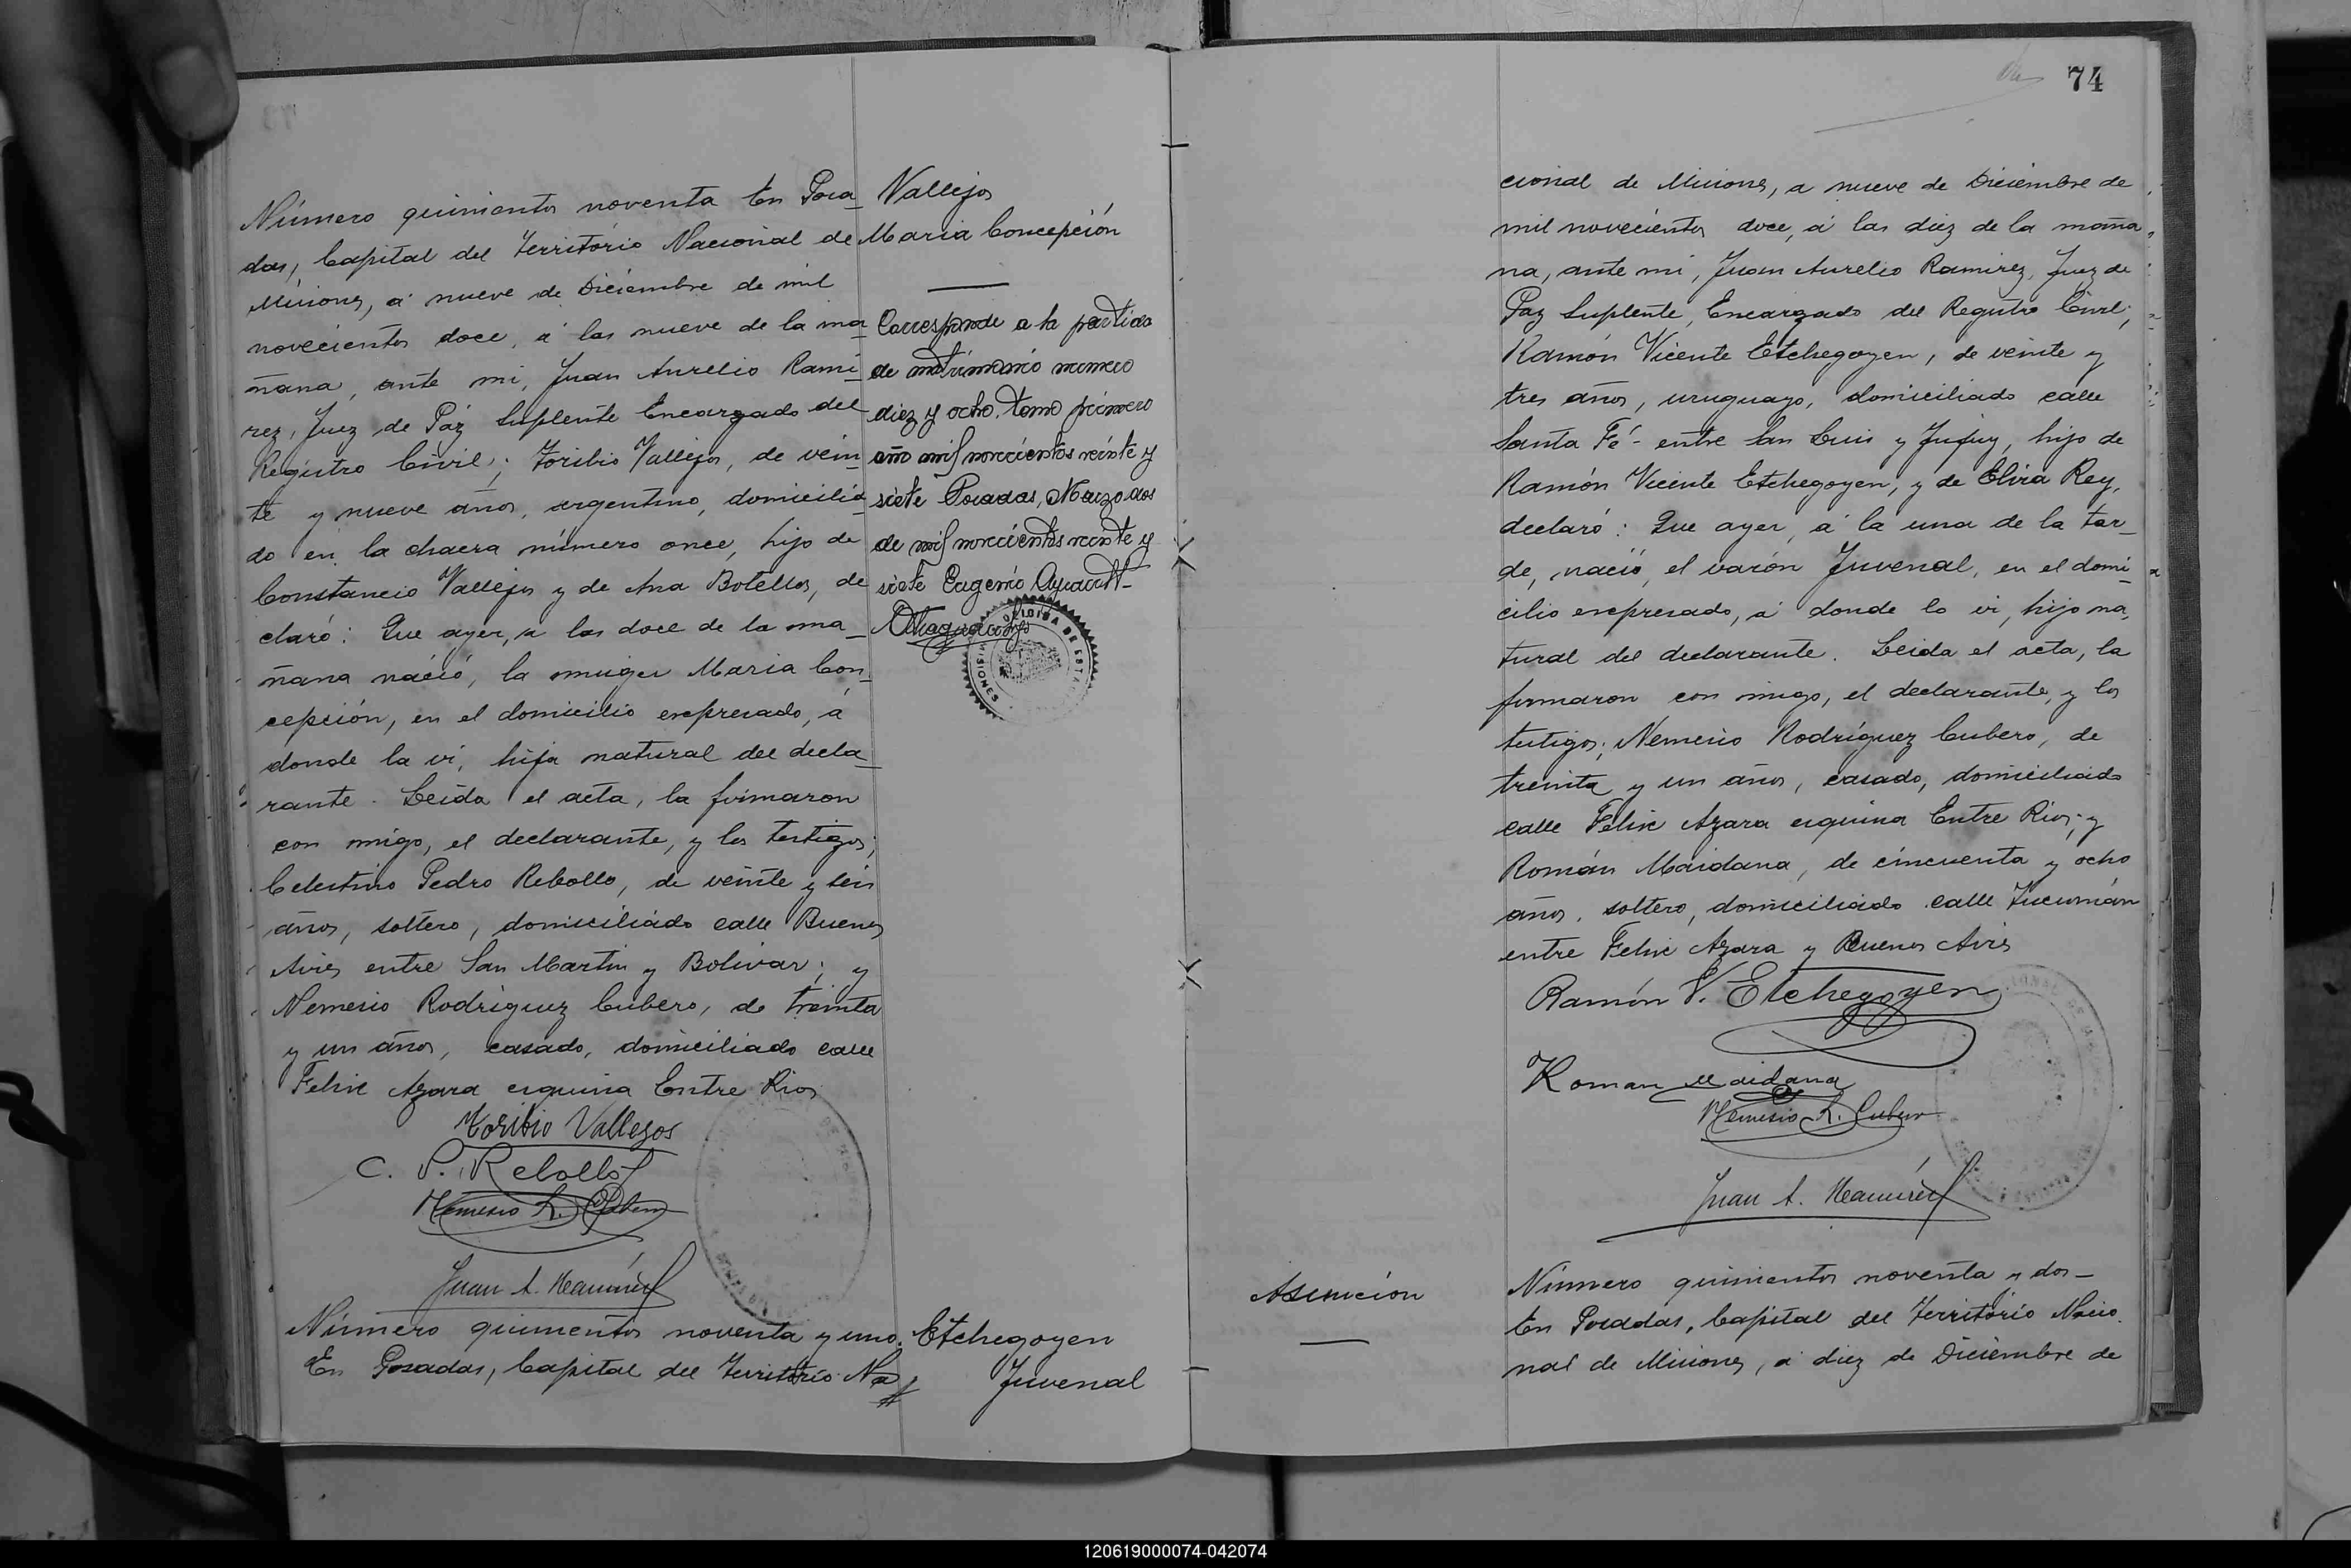 Número quinientos noventa En Posa_
das, Capital del Territorio Nacional de
Misiones, á nueve de Diciembre de mil
novecientos doce, á las nueve de la ma_
ñana, ante mi, Juan Aurelio Rami_
rez, Juez de Páz Suplente Encargado del
Registro Civil; Toribio Vallejos, de vein_
te y nueve años, argentino, domicilia_
do en la chacra número once, hijo de
Constancio Vallejos y de Ana Botello, de
claró: Que ayer, a las doce de la ma_
ñana nació, la muger Maria Con_
cepción, en el domicilio expresado, á
donde la vi, hija natural del decla_
rante. Leida el acta, la firmaron
con migo, el declarante, y los testigos;
Celestino Pedro Rebollo, de veinte y seis
años, soltero, domiciliado calle Buenos
Aires entre San Martin y Bolivar; y
Nemesio Rodriguez Cubero, de treinta
y un años, casado, domiciliado calle
Felix Azara esquina Entre Rios
Toribio Vallejos
C. P. Rebollo
Nemesio R. Cubero
Juan A. Ramírez
Número quinientos noventa y uno.
En Posadas, Capital del Territorio Na
Vallejos
Maria Concepción
Corresponde a la partida
de matrimonio número
diez y ocho, tomo primero
año mil novecientos veinte y
siete Posadas, Marzo dos
de mil novecientos veinte y
siete Eugenio
MISIONES
Etchegoyen
Juvenal
74
cional de Misiones, a nueve de Diciembre de
mil novecientos doce, á las diez de la maña
na, ante mi, Juan Aurelio Ramirez, Juez de
Paz Suplente, Encargado del Registro Civil;
Ramón Vicente Etchegoyen, de veinte y
tres años, uruguayo, domiciliado calle
Santa Fé- entre San Luis y Jujuy, hijo de
Ramón Vicente Etchegoyen, y de Elvira Rey,
declaró: Que ayer, á la una de la tar_
de, nació, el varón Juvenal, en el domi_
cilio expresado, á donde lo vi, hijo na,
tural del declarante. Leida el acta, la
firmaron con migo, el declarante, y los
testigos; Nemesio Rodríguez Cubero, de
treinta y un años, casado, domiciliado
calle Felix Azara esquina Entre Rios; y
Román Maidana, de cincuenta y ocho
años, soltero, domiciliado calle Tucumán
entre Felix Azara y Buenos Aires
Ramón V. Etchegoyen
Roman Maidana
Nemesio R. Cubero
Juan A. Ramírez
Asunción
Número quinientos noventa y dos_
En Posadas, Capital del Territorio Nacio
nal de Misiones, á diez de Diciembre de
120619000074-042074